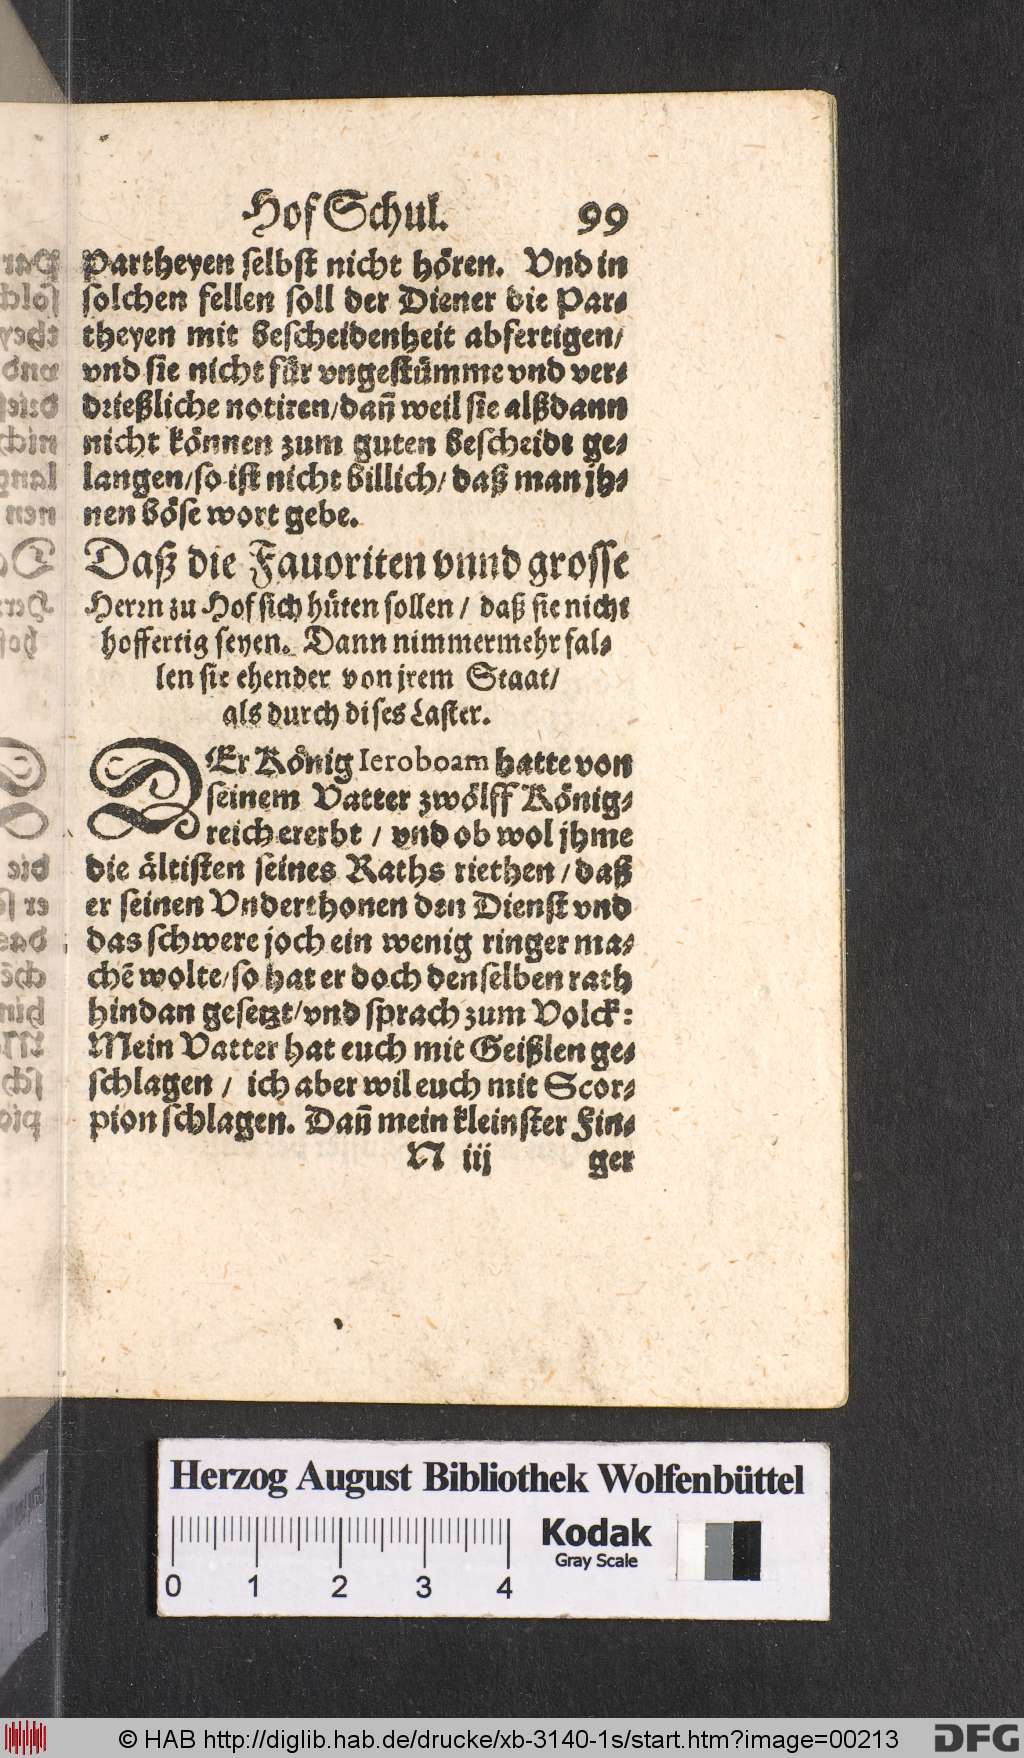 Hof Schul. 99
Partheyen selbst nicht hören. Vnd in
solchen fellen soll der Diener die Par-
theyen mit bescheidenheit abfertigen/
vnd sie nicht für vngestümme vnd ver-
drießliche notiren/dañ weil sie alßdann
nicht können zum guten bescheidt ge-
langen/so ist nicht billich/ daß man jh-
nen böse wort gebe.
Daß die Fauoriten vnnd grosse
Herrn zu Hof sich hüten sollen / daß sie nicht
hoffertig seyen. Dann nimmermehr fal-
len sie ehender von jrem Staat/
als durch dises Laster.
DEr König Ieroboam hatte von
seinem Vatter zwölff König-
reich ererbt / vnd ob wol jhme
die ältisten seines Raths riethen / daß
er seinen Vnderthonen den Dienst vnd
das schwere joch ein wenig ringer ma-
chẽ wolte/so hat er doch denselben rath
hindan gesetzt/vnd sprach zum Volck:
Mein Vatter hat euch mit Geißlen ge-
schlagen / ich aber wil euch mit Scor-
pion schlagen. Dañ mein kleinster Fin-
N iij ger
Herzog August Bibliothek Wolfenbüttel
0 1 2 3 4
Kodak
Gray Scale
© HAB http://diglib.hab.de/drucke/xb-3140-1s/start.htm?image=00213
DFG